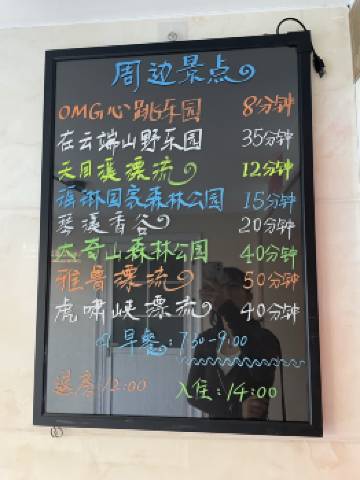 周边景点
OMG心跳乐园 8分钟
在云端山野乐园 35分钟
天目溪漂流 12分钟
瑶琳国家森林公园 15分钟
琴溪香谷 20分钟
大奇山森林公园 40分钟
雅鲁漂流 50分钟
虎啸峡漂流 40分钟
早餐:7:30-9:00
退房:12:00 入住:14:00